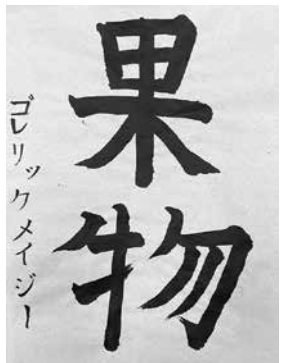 果物
ゴレリックメイジー